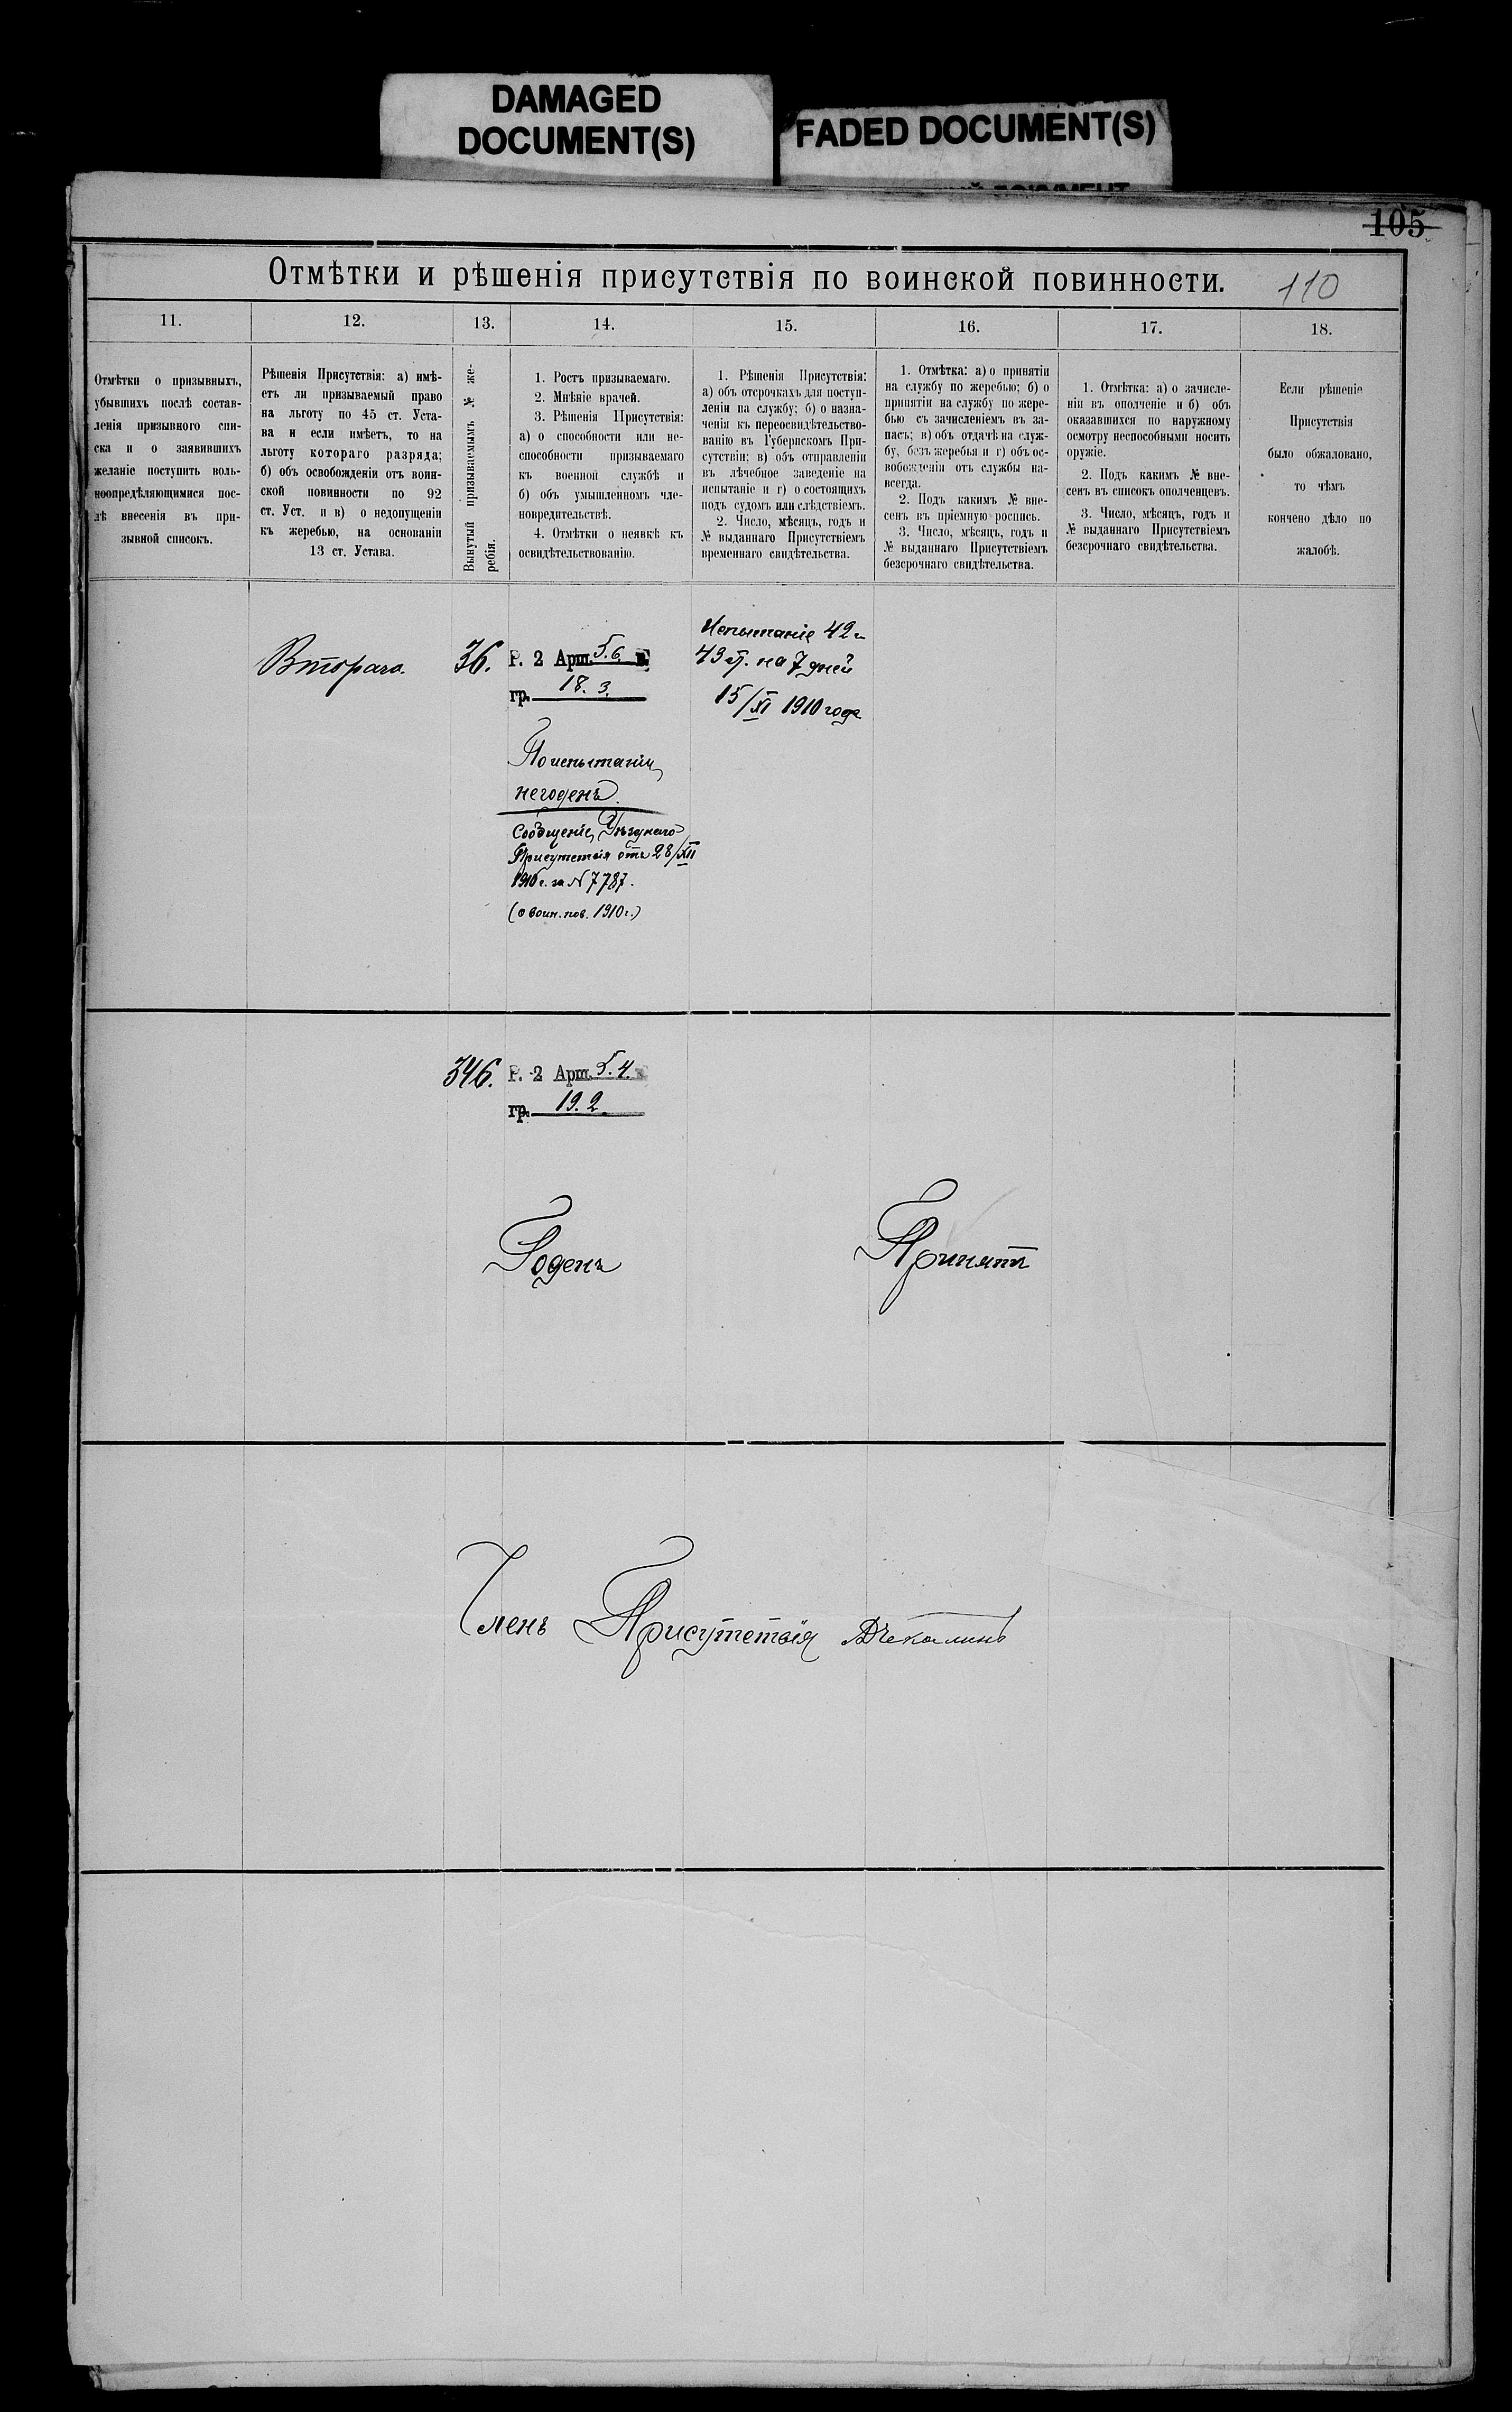 DAMAGED
DOCUMENT(S)
FADED DOCUMENT(S)
105
Отмѣтки и рѣшенія присутствія по воинской повинности.
110
11.
12.
13.
14.
15.
16.
17.
18.
Отмѣтки о призывныхъ,
убывшихъ послѣ состав-
ленія призывного спи-
ска и о заявившихъ
желаніе поступить воль-
ноопредѣляющимися пос-
лѣ внесенія въ при-
зывной списокъ.
Рѣшенія Присутствія: а) имѣ-
етъ ли призываемый право
на льготу по 45 ст. Уста-
ва и если имѣетъ, то на
льготу котораго разряда;
б) объ освобожденіи отъ воин-
ской повинности по 92
ст. Уст. и в) о недопущеніи
къ жеребью, на основаніи
13 ст. Устава.
Вынутый призываемымъ № же-
ребія.
1. Ростъ призываемаго.
2. Мнѣніе врачей.
3. Рѣшенія Присутствія:
а) о способности или не-
способности призываемаго
къ военной службѣ и
б) объ умышленномъ чле-
новредительствѣ.
4. Отмѣтки о неявкѣ къ
освидѣтельствованію.
1. Рѣшенія Присутствія:
а) объ отсрочкахъ для поступ-
ленія на службу; б) о назна-
ченіи къ переосвидѣтельство-
ванію въ Губернскомъ При-
сутствіи; в) объ отправленіи
въ лѣчебное заведеніе на
испытаніе и г) о состоящихъ
подъ судомъ или слѣдствіемъ.
2. Число, мѣсяцъ, годъ и
№ выданнаго Присутствіемъ
временнаго свидѣтельства.
1. Отмѣтка: а) о принятіи
на службу по жеребью; б) о
принятіи на службу по жере-
бью съ зачисленіемъ въ за-
пасъ; в) объ отдачѣ на служ-
бу, безъ жеребья и г) объ ос-
вобожденіи отъ службы на-
всегда.
2. Подъ какимъ № вне-
сенъ въ пріемную роспись.
3. Число, мѣсяцъ, годъ и
№ выданнаго Присутствіемъ
безсрочнаго свидѣтельства.
1. Отмѣтка: а) о зачисле-
ніи въ ополченіе и б) объ
оказавшихся по наружному
осмотру неспособными носить
оружіе.
2. Подъ какимъ № вне-
сенъ въ списокъ ополченцевъ.
3. Число, мѣсяцъ, годъ и
№ выданнаго Присутствіемъ
безсрочнаго свидѣтельства.
Если рѣшеніе
Присутствія
было обжаловано,
то чѣмъ
кончено дѣло по
жалобѣ.
Втораго.
36.
Р. 2 Арш. 5.6
гр. 18. 3.
По испытаніи
негоденъ.
Сообщеніе Уѣзднаго
Присутствія отъ 28/XII
1910 г. за № 7787.
(о воин. пов. 1910 г.)
Испытаніе 42 и
43 ст. на 7 дней
15/XI 1910 года
346.
Р. 2 Арш. 5.4.
гр. 19. 2.
Годенъ
Принятъ
Членъ Присутствія Чекалинъ